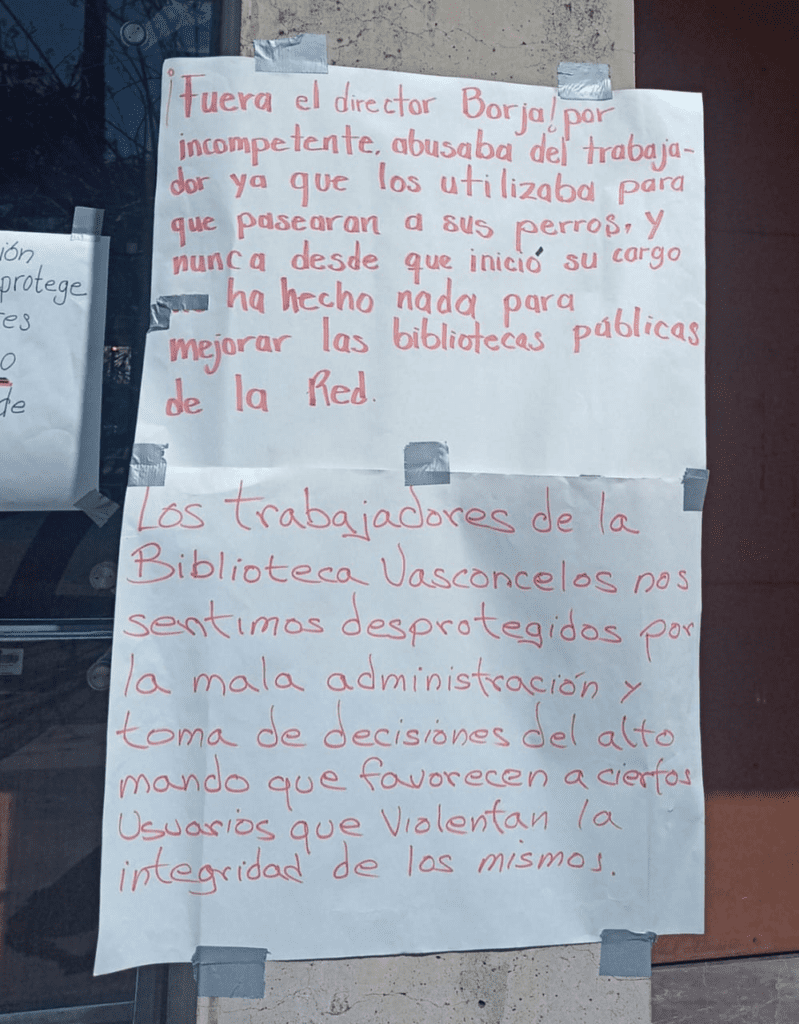 ión
protege
res
o
de
¡Fuera el director Borja! por
incompetente, abusaba del trabaja-
dor ya que los utilizaba para
que pasearan a sus perros, y
nunca desde que inició su cargo
ha hecho nada para
mejorar las bibliotecas públicas
de la Red.
Los trabajadores de la
Biblioteca Vasconcelos nos
sentimos desprotegidos por
la mala administración y
toma de decisiones del alto
mando que favorecen a ciertos
Usuarios que Violentan la
integridad de los mismos.